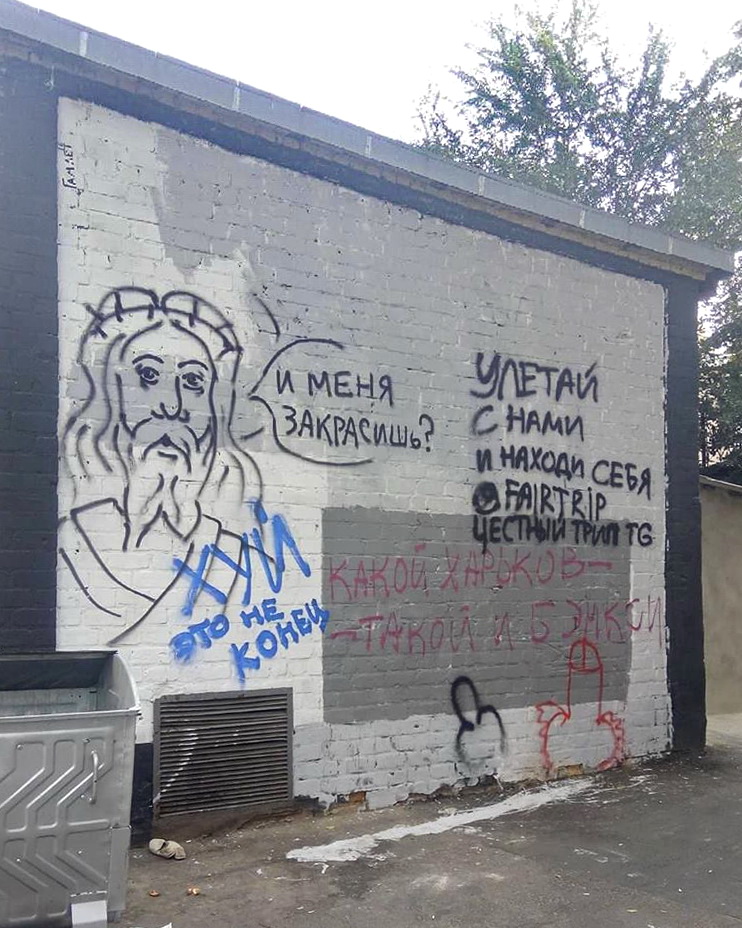 Гамлет
И МЕНЯ
ЗАКРАСИШЬ?
УЛЕТАЙ
С НАМИ
И НАХОДИ СЕБЯ
@FAIRTRIP
ЧЕСТНЫЙ ТРИП TG
ХУЙ
ЭТО НЕ
КОНЕЦ
КАКОЙ ХАРЬКОВ–
–ТАКОЙ И БЭНКСИ